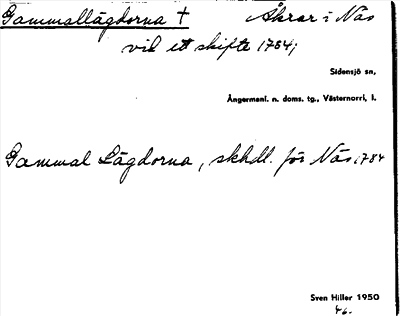 Gammallägdorna † Åkrar i Näs
vid ett skifte 1784;
Sidensjö sn,
Ångermanl. n. doms. tg., Västernorrl. l.
Gammal Lägdorna, skhdl. för Näs 1784
Sven Hiller 1950
46.